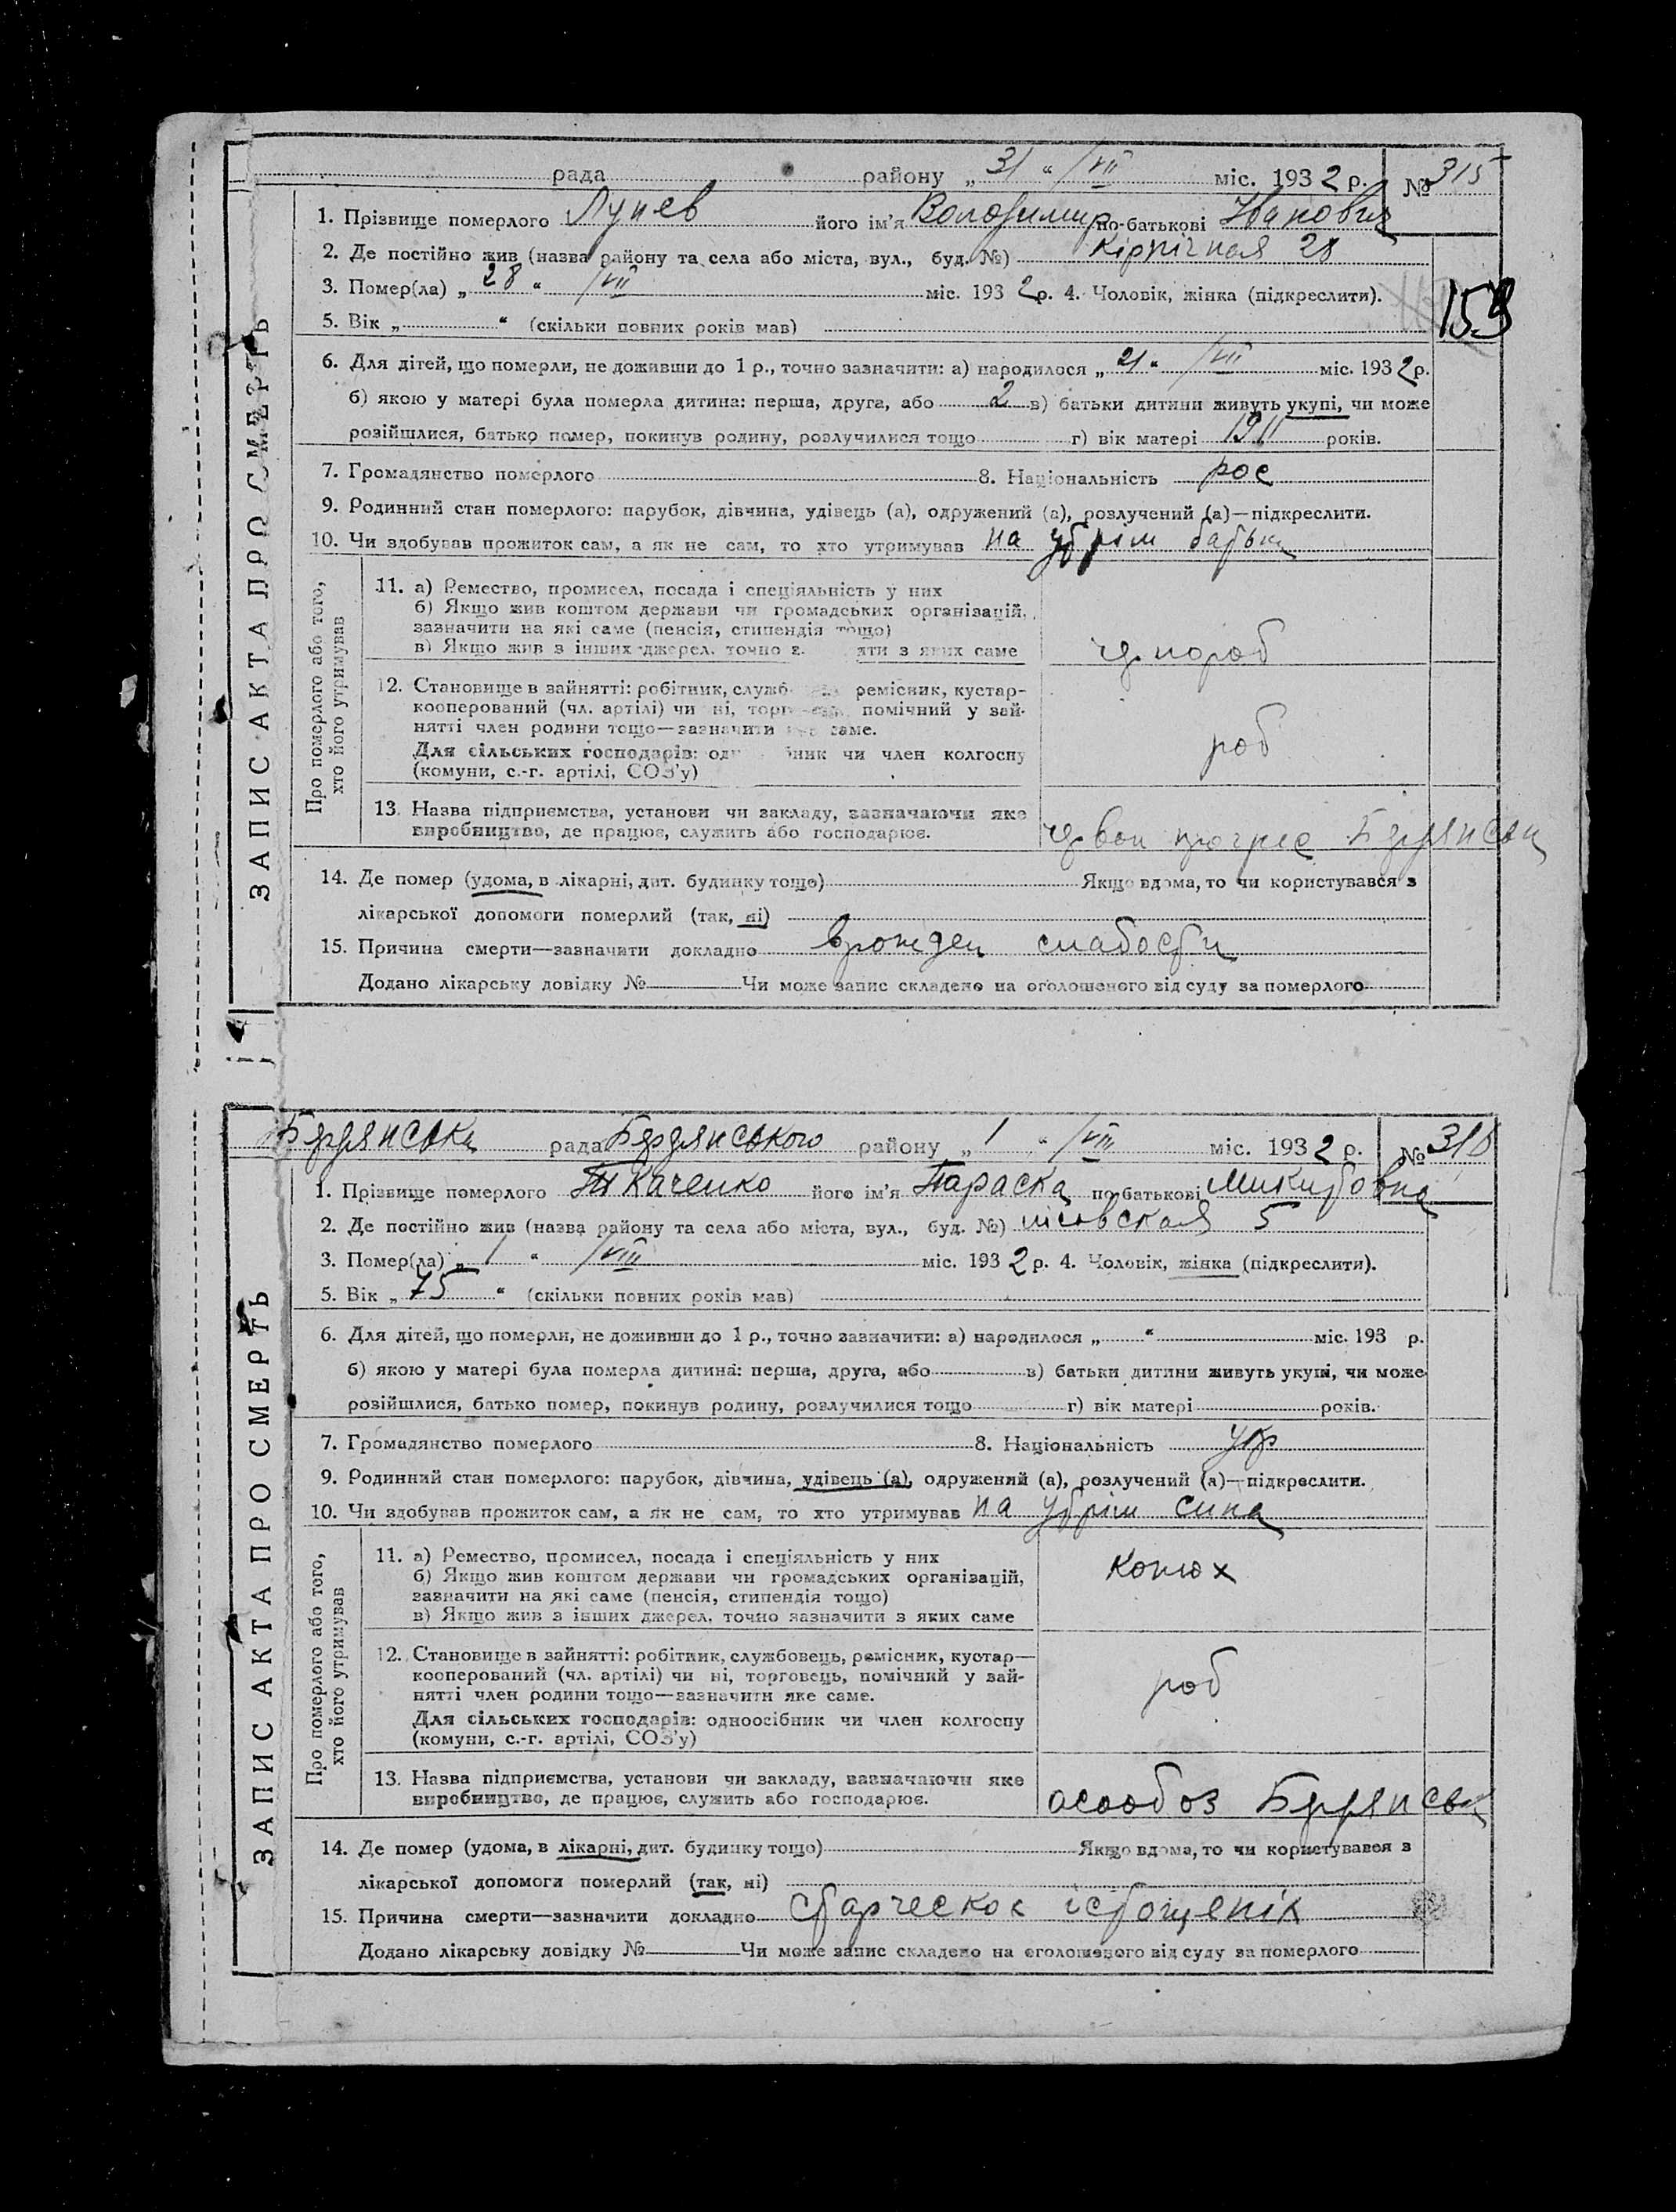 рада району „31“ /VII міс. 1932 р. № 315
1. Прізвище померлого Лунев його ім'я Володимир по-батькові Іванович
2. Де постійно жив (назва району та села або міста, вул., буд. №) Кірпічная 28
3. Помер(ла) „28“ /VII міс. 1932 р. 4. Чоловік, жінка (підкреслити).
159
5. Вік „ “ (скільки повних років мав)
6. Для дітей, що померли, не доживши до 1 р., точно зазначити: а) народилося „21“ /VII міс. 1932 р.
б) якою у матері була померла дитина: перша, друга, або 2 в) батьки дитини живуть укупі, чи може
розійшлися, батько помер, покинув родину, розлучилися тощо г) вік матері 1911 років.
7. Громадянство померлого 8. Національність рос
9. Родинний стан померлого: парубок, дівчина, удівець (а), одружений (а), розлучений (а)—підкреслити.
10. Чи здобував прожиток сам, а як не сам, то хто утримував на утрім батьк
ЗАПИС АКТА ПРО СМЕРТЬ
Про померлого або того,
хто його утримував
11. а) Ремество, промисел, посада і спеціяльність у них
б) Якщо жив коштом держави чи громадських організацій,
зазначити на які саме (пенсія, стипендія тощо)
в) Якщо жив з інших джерел, точно з яти з яких саме
чернороб
12. Становище в зайнятті: робітник, служб ремісник, кустар-
кооперований (чл. артілі) чи ні, торг помічний у зай-
нятті член родини тощо—зазначити саме.
Для сільських господарів: од бник чи член колгоспу
(комуни, с.-г. артілі, СОЗ'у)
роб
13. Назва підприємства, установи чи закладу, зазначаючи яке
виробництво, де працює, служить або господарює.
червон прогрес Бердянськ
14. Де помер (удома, в лікарні, дит. будинку тощо) Якщо вдома, то чи користувався з
лікарської допомоги померлий (так, ні)
15. Причина смерти—зазначити докладно врожден слабости
Додано лікарську довідку № Чи може запис складено на оголошеного від суду за померлого
Бердянська рада Бердянського району „1“ /VIII міс. 1932 р. № 316
1. Прізвище померлого Ткаченко його ім'я Параска по батькові Микитовна
2. Де постійно жив (назва району та села або міста, вул., буд. №) 5
3. Помер(ла) „1“ /VIII міс. 1932 р. 4. Чоловік, жінка (підкреслити).
5. Вік „75“ (скільки повних років мав)
6. Для дітей, що померли, не доживши до 1 р., точно зазначити: а) народилося „ “ міс. 193 р.
б) якою у матері була померла дитина: перша, друга, або в) батьки дитини живуть укупі, чи може
розійшлися, батько помер, покинув родину, розлучилися тощо г) вік матері років.
7. Громадянство померлого 8. Національність укр
9. Родинний стан померлого: парубок, дівчина, удівець (а), одружений (а), розлучений (а)—підкреслити.
10. Чи здобував прожиток сам, а як не сам, то хто утримував на утрім сина
ЗАПИС АКТА ПРО СМЕРТЬ
Про померлого або того,
хто його утримував
11. а) Ремество, промисел, посада і спеціяльність у них
б) Якщо жив коштом держави чи громадських організацій,
зазначити на які саме (пенсія, стипендія тощо)
в) Якщо жив з інших джерел, точно зазначити з яких саме
конюх
12. Становище в зайнятті: робітник, службовець, ремісник, кустар—
кооперований (чл. артілі) чи ні, торговець, помічний у зай-
нятті член родини тощо—зазначити яке саме.
Для сільських господарів: одноосібник чи член колгоспу
(комуни, с.-г. артілі, СОЗ'у)
роб
13. Назва підприємства, установи чи закладу, зазначаючи яке
виробництво, де працює, служить або господарює.
асообоз Бердянськ
14. Де помер (удома, в лікарні, дит. будинку тощо) Якщо вдома, то чи користувався з
лікарської допомоги померлий (так, ні)
15. Причина смерти—зазначити докладно старческое істощеніе
Додано лікарську довідку № Чи може запис складено на оголошеного від суду за померлого